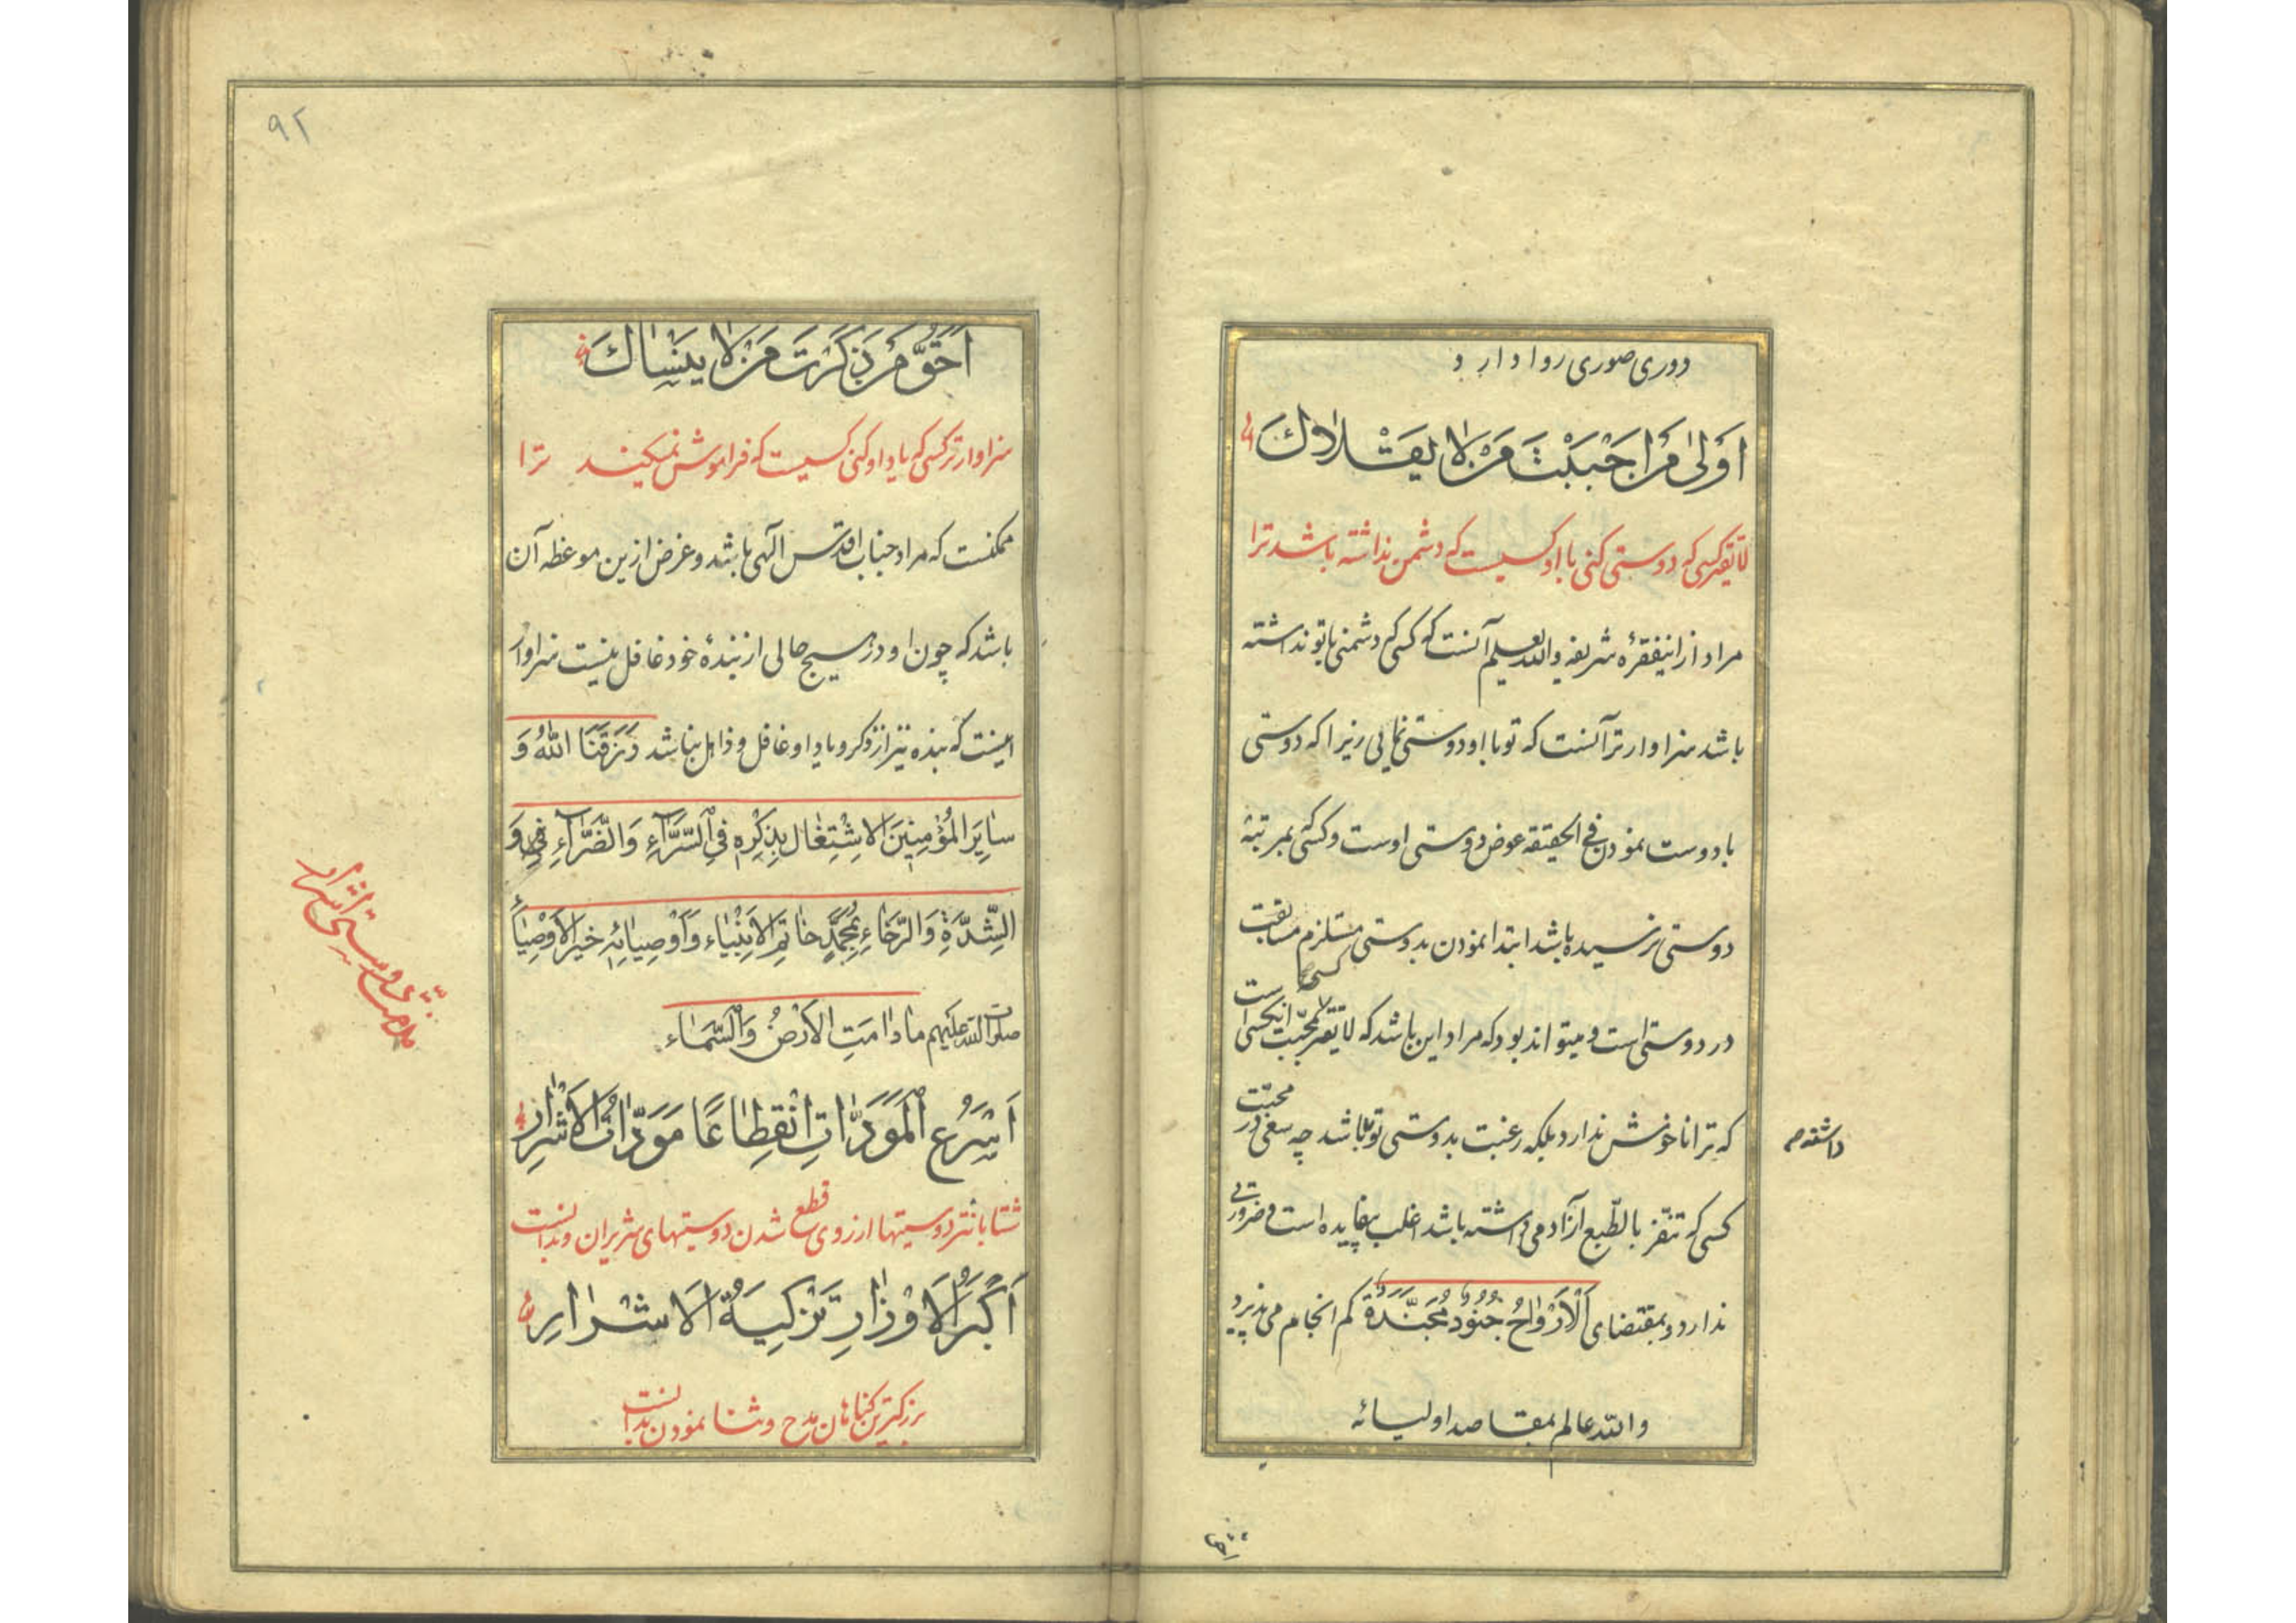 دوری صوری روا دارد
اَوْلىٰ مَنْ اَحْبَبْتَ مَنْ لا يَقْلاكَ
لایقتر کسی که دوستی کنی با او کسیست که دشمن نداشته باشد ترا
مراد ازاینفقرهٔ شریفه والله یعلم آنست که کسی که دشمنی باتو نداشته
باشد سزاوارتر آنست که تو با او دوستی نمایی زیرا که دوستی
با دوست نمودن فی الحقیقه عوض دوستی اوست و کسی که بمرتبهٔ
دوستی نرسیده باشد ابتدا نمودن بدوستی مستلزم مسابقت
در دوستی است و میتواند بود که مراد این باشد که لایقتر بمحبّت کسی است
که ترا ناخوش ندارد بلکه رغبت بدوستی تو باشد چه سعی در محبّت
داشته
کسی که تنفّر بالطّبع از آدمی داشته باشد اغلب بیفایده است و ضرورتی
ندارد و بمقتضای اَلْاَرْواحُ جُنُودٌ مُجَنَّدَةٌ کم انجام می پذیرد
والله عالم بمقاصد اولیائه
۹۲
اَحَقُّ مَنْ ذَكَرْتَ مَنْ لا يَنْساكَ
سزاوارتر کسی که یاد او کنی کسیست که فراموش نمیکند ترا
ممکنست که مراد جناب اقدس الهی باشد و غرض ازین موعظه آن
باشد که چون او در هیچ حالی از بندهٔ خود غافل نیست سزاوار
اینست که بنده نیز از ذکر و یاد او غافل و ذاهل نباشد رَزَقَنَا اللهُ وَ
سايِرَ الْمُؤْمِنينَ الاِشْتِغالَ بِذِكْرِهِ فِي السَّرّآءِ وَالضَّرّآءِ وَفِي
الشِّدَّةِ وَالرَّخاءِ بِمُحَمَّدٍ خاتَمِ الاَنْبِياءِ وَاَوْصِيائِهِ خَيْرِ الاَوْصِياءِ
صلوات الله عليهم مادامَتِ الاَرْضُ وَالسَّماءُ
اَسْرَعُ الْمَوَدّاتِ انْقِطاعًا مَوَدّاتُ الاَشْرارِ
شتابانتر دوستیها از روی قطع شدن دوستیهای شریران و بدانست
اَكْبَرُ الاَوْزارِ تَزْكِيَةُ الاَشْرارِ
بزرگترین گناهان مدح وثنا نمودن بدانست